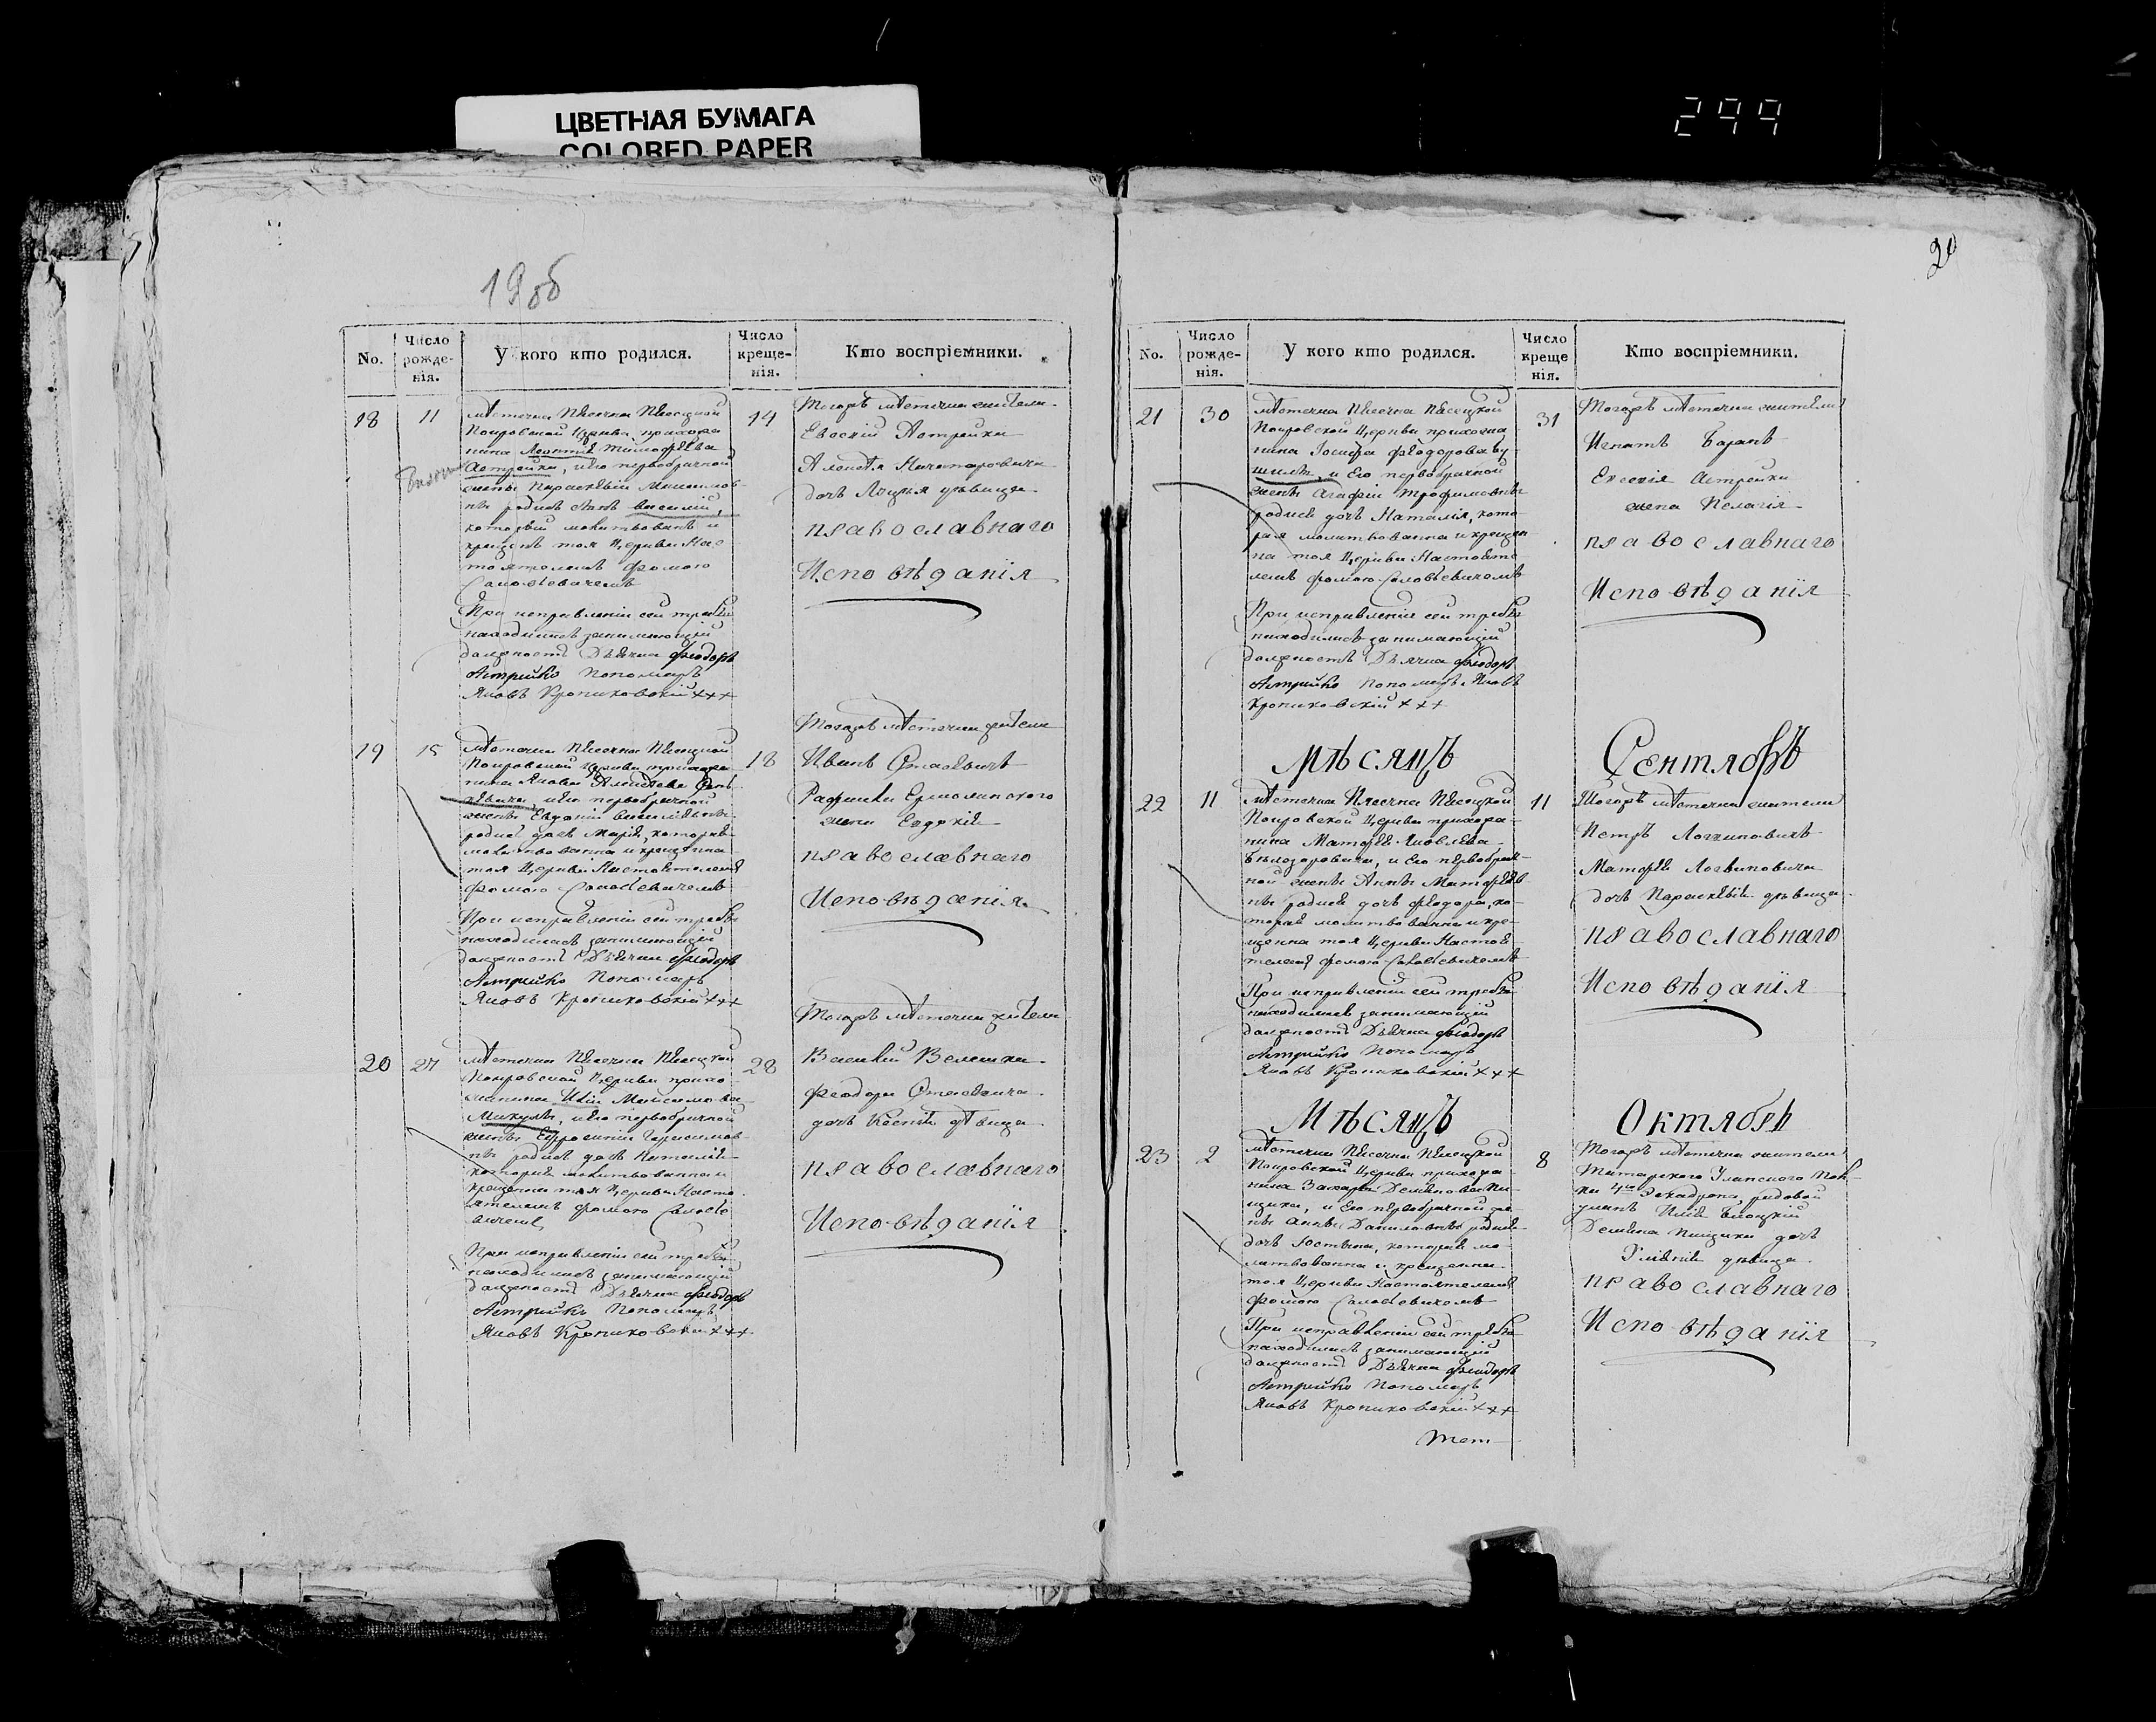 ЦВЕТНАЯ БУМАГА
COLORED PAPER
299
20
No.
Число рожде-нія.
У кого кто родился.
Число креще-нія.
Кто воспріемники.
18
11
мѣстечка Пѣсочна Пѣсоцкой
Покровской Церкви прихожа
нина Леонтія Тимофѣева
Астрейки, иего первобрачной
жены
родисѣ сынъ Василій,
который молитвованъ и
крещенъ тоя Церкви Нас
тоятелемъ Фомою
Соловьевичемъ
При исправленіи сей требы
находились занимающій
должность Дьячка Феодоръ
Астрейко Пономарь
Яковъ Кропиховскій +++
14
Тогожъ мѣстечка жители
Евсевій Астрейка
дочь Луцея дѣвица
православнаго
Исповѣданія
19
15
мѣстечка Пѣсочна Пѣсоцкой
Покровской Церкви прихожа
нина Якова Алексѣева
иего первобрачной
жены Евдокіи Василѣвны
родисѣ дочь Марія, которая
молитвованна и крещенна
тоя Церкви Настоятелемъ
Фомою Соловьевичемъ
При исправленіи сей требы
находились занимающій
должность Дьячка Феодоръ
Астрейко Пономарь
Яковъ Кропиховскій +++
18
Тогожъ мѣстечка жители
Иванъ Стасевичъ
жена Евдокія
православнаго
Исповѣданія
20
27
мѣстечка Пѣсочна Пѣсоцкой
Покровской Церкви прихо
жанина Иліи Максимова
Микулы, иего первобрачной
жены Ефросиніи Герасимов
ны родисѣ дочь Наталія
которая молитвованна и
крещенна тоя Церкви Насто
ятелемъ Фомою Соловье
вичемъ
При исправленіи сей требы
находились занимающій
должность Дьячка Феодоръ
Астрейко Пономарь
Яковъ Кропиховскій +++
28
Тогожъ мѣстечка жители
Василій Велешка
Феодора Стасевича
дочь Ксенія дѣвица
православнаго
Исповѣданія
No.
Число рожде-нія.
У кого кто родился.
Число креще нія.
Кто воспріемники.
21
30
мѣстечка Пѣсочна Пѣсоцкой
Покровской Церкви прихожа
нина Іосифа Феодорова
и Его первобрачной
жены Агафіи Трофимовны
родися дочь Наталія, кото
рая молитвованна и крещен
на тоя Церкви Настояте
лемъ Фомою Соловьевичемъ
При исправленіи сей требы
находились занимающій
должность Дьячка Феодоръ
Астрейко Пономарь Яковъ
Кропиховскій +++
31
Тогожъ мѣстечка жители
Игнатъ Баранъ
Евсевія Астрейки
жена Пелагія
православнаго
Исповѣданія
Мѣсяцъ Сентябрь
22
11
мѣстечка Пѣсочна Пѣсоцкой
Покровской Церкви прихожа-
нина Матфея Яковлева
и Его первобрач
ной жены Анны Матфѣев
ны родися дочь Феодора, ко
торая молитвованна и кре
щенна тоя Церкви Настоя
телемъ Фомою Соловьевичемъ
При исправленіи сей требы
находились занимающій
должность Дьячка Феодоръ
Астрейко Пономарь
Яковъ Кропиховскій +++
11
Тогожъ мѣстечка жители
Петръ Логвиновичъ
Матфея Логвиновича
дочь Параскевія дѣвица
православнаго
Исповѣданія
Мѣсяцъ Октябрь
23
2
мѣстечка Пѣсочна Пѣсоцкой
Покровской Церкви прихожа
нина Захарія
и Его первобрачной же
ны Анны Даниловны родися
дочь Іостина, которая мо
литвованна и крещенна
тоя Церкви Настоятелемъ
Фомою Соловьевичемъ
При исправленіи сей требы
находились занимающій
должность Дьячка Феодоръ
Астрейко Пономарь
Яковъ Кропиховскій +++
8
Тогожъ мѣстечка жители
Татарскаго Уланскаго Пол-
ка 4го Эскадрона рядовой
уланъ Илія
дочь
Уліянія дѣвица
православнаго
Исповѣданія